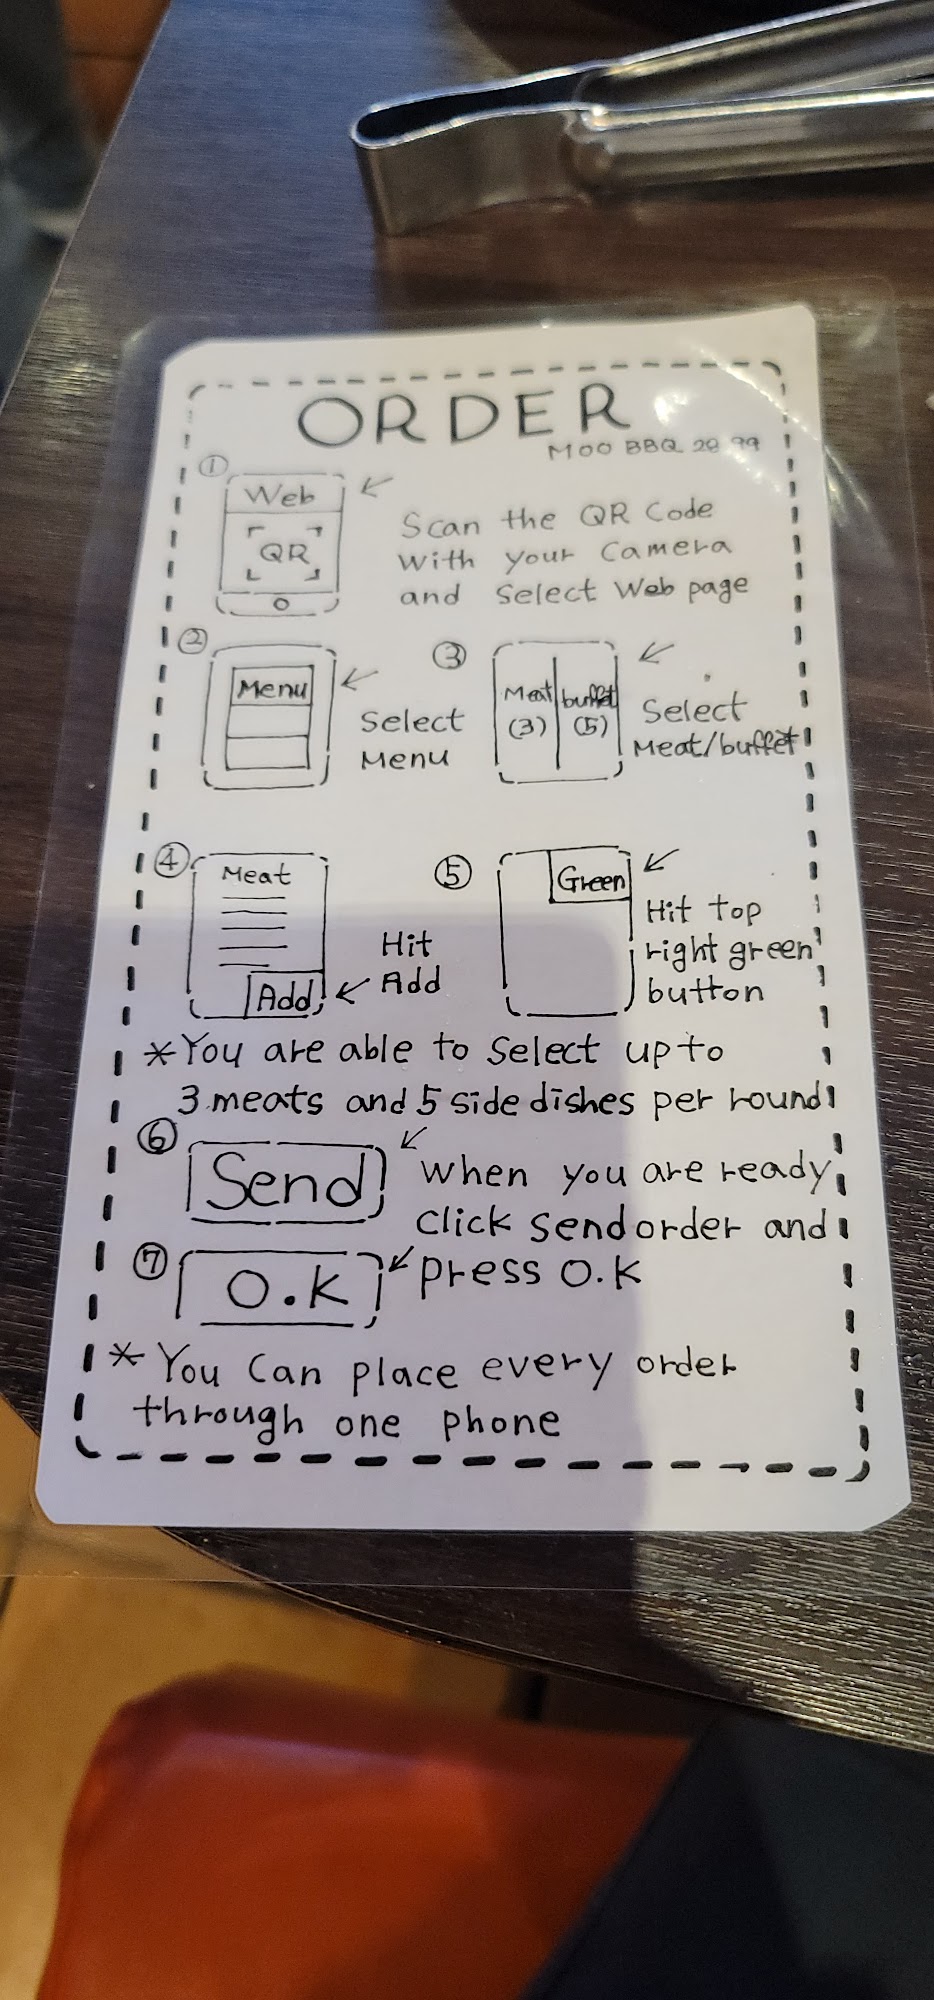 ORDER
MOO BBQ 29.99
①
Web
QR
Scan the QR Code
with your Camera
and Select Web page
②
Menu
Select
Menu
③
Meat buffet
(3) (5)
Select
Meat/buffet
④
Meat
Add
Hit
Add
⑤
Green
Hit top
right green
button
*You are able to Select up to
3 meats and 5 side dishes per round
⑥
Send
When you are ready
Click send order and
press O.K
⑦
O.K
* You Can place every order
through one phone